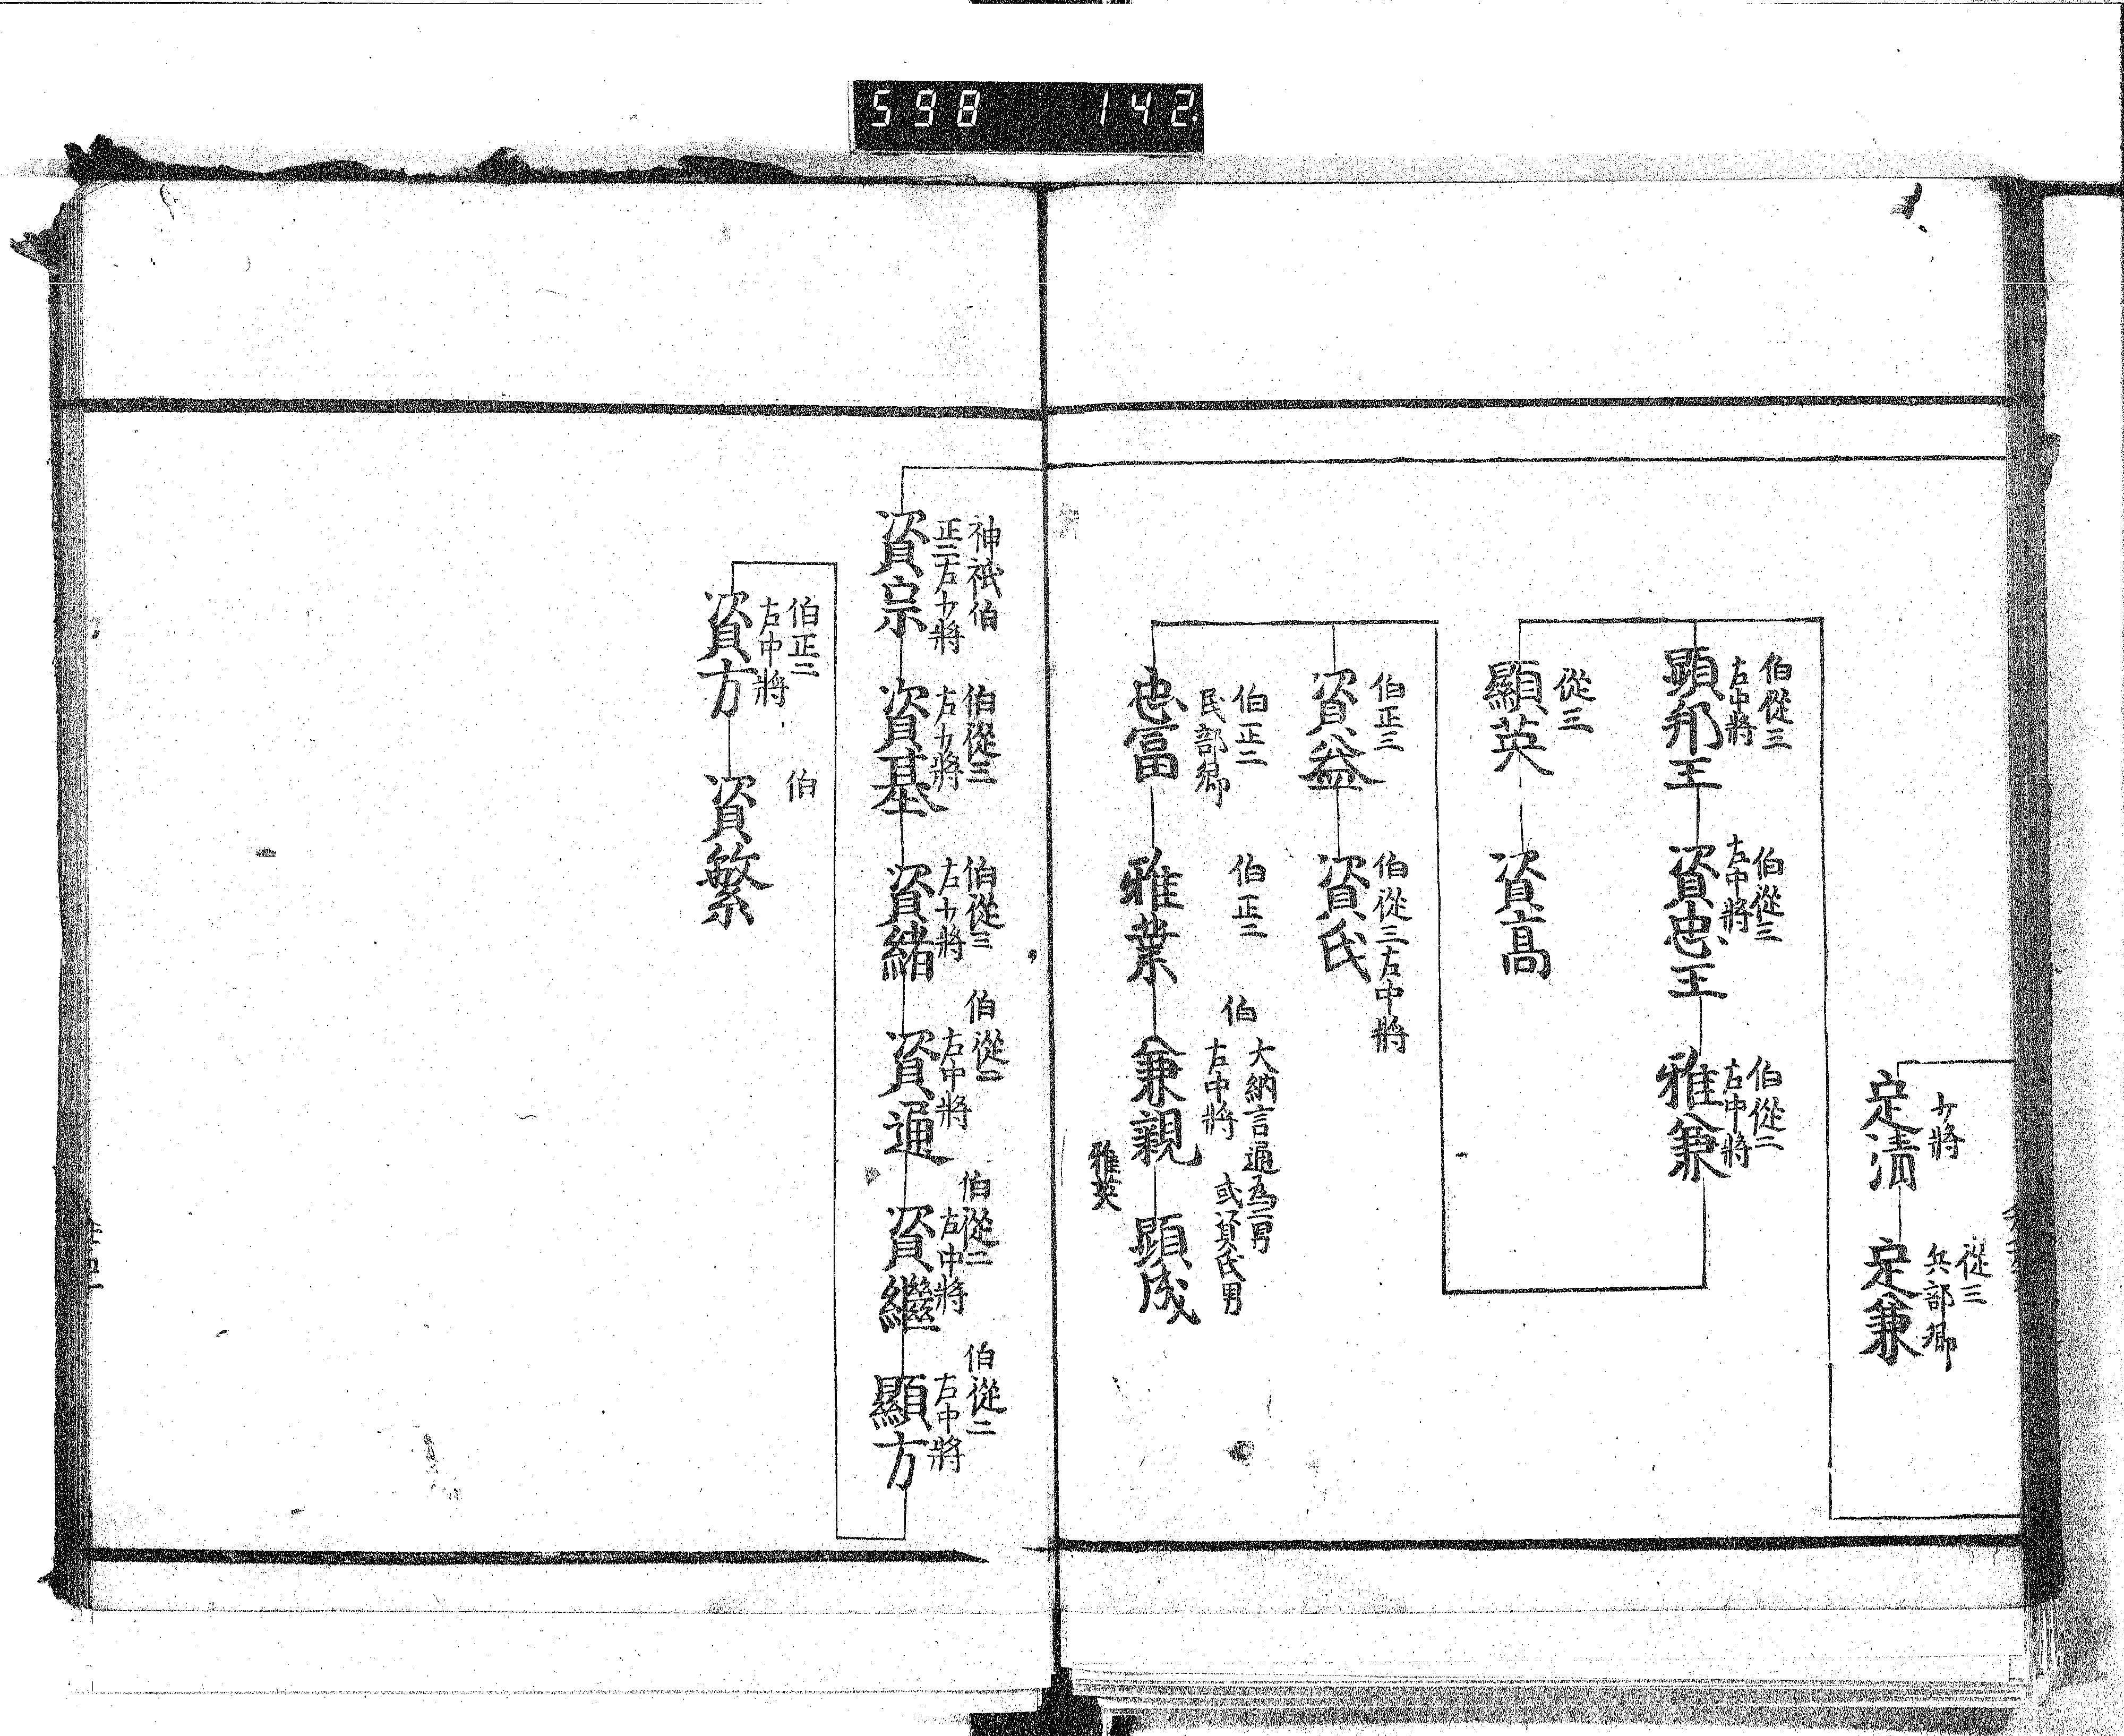 598 142
少將
定清
從三
兵部卿
定兼
伯從三
右中將
顕邦王
伯從三
右中將
資忠王
伯從二
右中將
雅兼
從三
顯英
資高
伯正三
資益
伯從三右中將
資氏
伯正二
民部卿
忠富
伯正二
雅業
伯
右中將
兼親
雅英
大納言通為二男
或資氏男
顕成
神祇伯
正二右少將
資宗
伯從三
右少將
資基
伯從三
右少將
資緒
伯從二
右中將
資通
伯從二
右中將
資繼
伯從二
右中將
顯方
伯正二
右中將
資方
伯
資繁